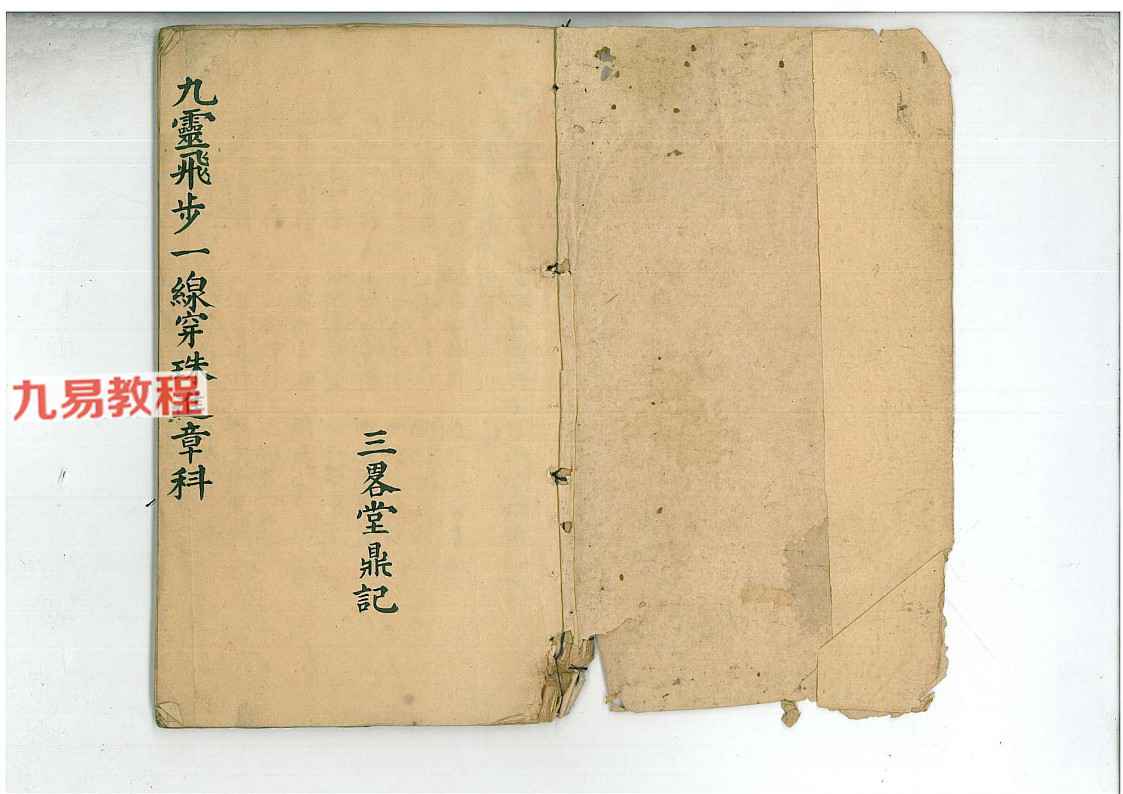 三畧堂鼎記
九靈飛步一線穿珠章科
九易教程